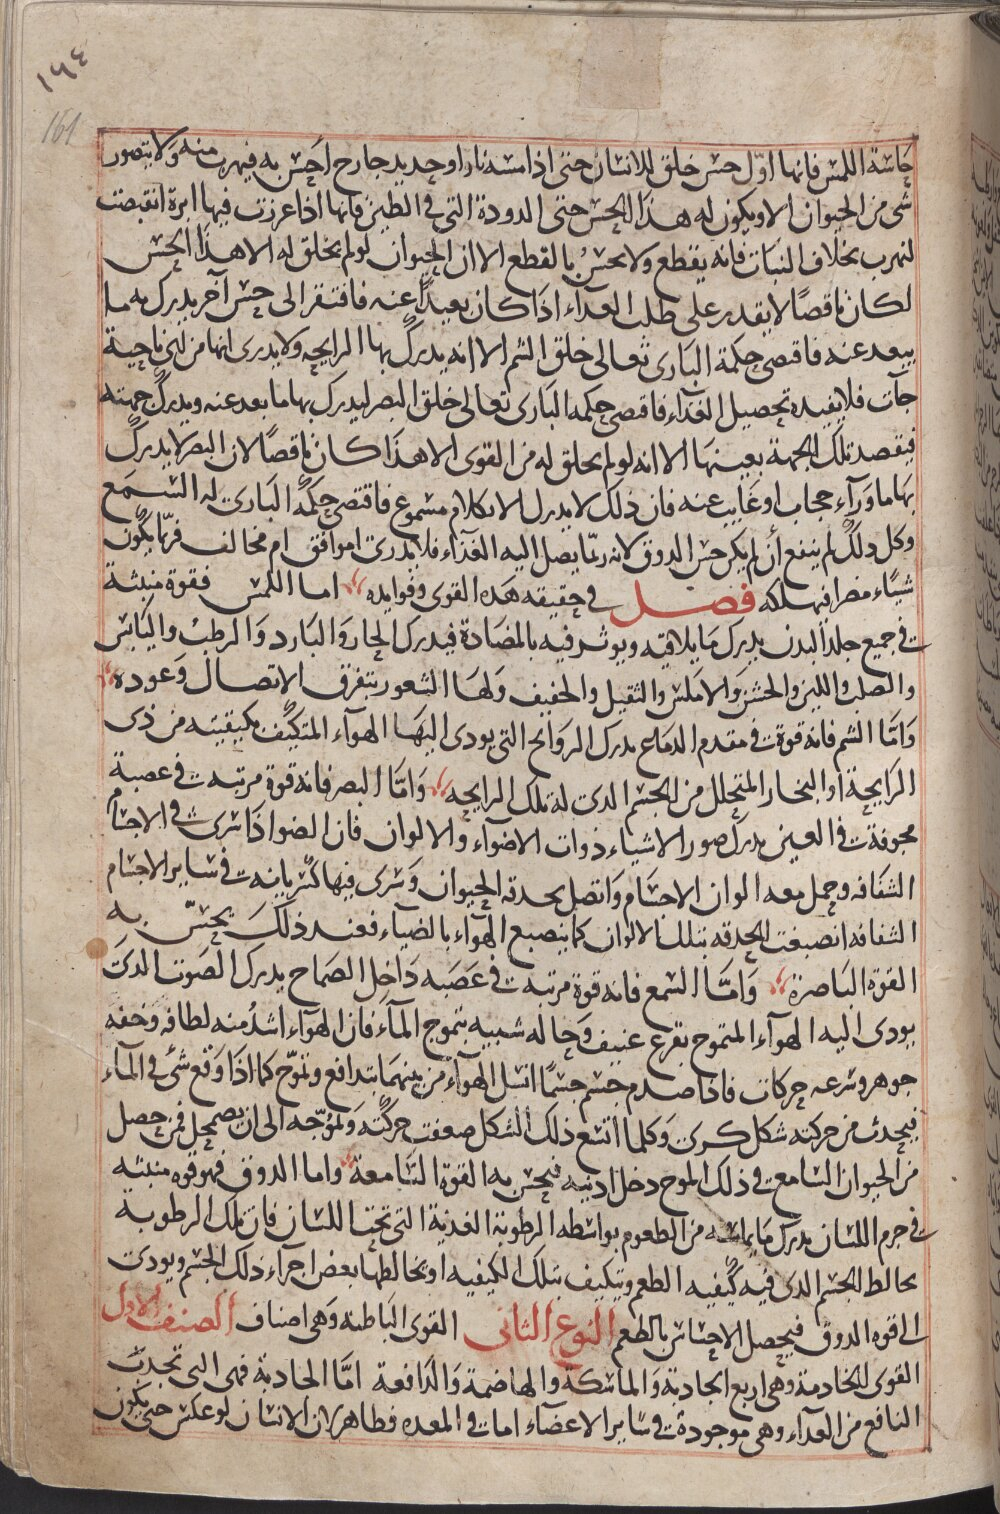 ١٦٤
161
حاسة اللمس فانها اول حس خلق للانسان حتى اذا مسته نار او حديد جارح احس به فيهرب منه ولا يتصور
شى من الحيوان الا ويكون له هذا الحس حتى الدودة التى فى الطين فانها اذا غرزت فيها ابرة انقبضت
لتهرب بخلاف النبات فانه يقطع ولا يحس بالقطع الا ان الحيوان لو لم يخلق له الا هذا الحس
لكان ناقصًا لا يقدر على طلب الغداء اذا كان بعيدًا عنه فافتقر الى حس آخر يدرك به ما
يبعد عنه فاقتضى حكمة البارى تعالى خلق الشم الا انه يدرك بها الرايحه ولا يدرى انها من اى ناحية
جآت فلا يفيده تحصيل الغذآء فاقتضى حكمه البارى تعالى خلق البصر ليدرك بها ما بعد عنه ويدرك جهته
فيقصد تلك الجهة بعينها الا انه لو لم يخلق له من القوى الا هذا كان ناقصًا لان البصر لا يدرك
بها ما ورآء حجاب او غايب عنه فان ذلك لا يدرك الا بكلام مسموع فاقتضى حكمة البارى له السمع
وكل ذلك لم ينفع أن لم يكن حس الدوق لانه ربما يصل اليه الغذآء فلا يدرى اموافق ام مخالف فربما يكون
شيًاء مضرا فيهلكه فصل فى حقيقه هذه القوى وفوايده اما اللمس فقوة منبثة
فى جميع جلد البدن يدرك ما يلاقيه ويوثر فيه بالمضادة فيدرك الحار والبارد والرطب واليابس
والصلب واللين والخشن والاملس والثقيل والخفيف ولها الشعور بتفرق الاتصال وعوده
واما الشم فانه قوة فى مقدم الدماغ يدرك الروايح التى يودى اليها الهوآء المتكيف بكيفيته من ذى
الرايحة او البخار المتحلل من الجسم الدى له تلك الرايحه واما البصر فانه قوة مرتبة فى عصبة
مجوفة فى العين يدرك صور الاشياء ذوات الاضوآء والالوان فان الضوا ذا سرى فى الاجسام
الشفافه وحمل معه الوان الاجسام واتصل بحدقه الحيوان وسرى فيها كسريانه فى ساير الاجسام
الشفافه انصبغت الحدقه بتلك الالوان كما ينصبغ الهوآء بالضياء فعند ذلك يحس به
القوة الباصرة واما السمع فانه قوة مرتبة فى عصبه داخل الصماخ يدرك الصوت الدى
يودى اليه الهوآء المتموج بقرع عنيف وحاله شبيه بتموج المآء فان الهوآء اشد منه لطافه وخفه
جوهر وسرعه حركات فاذا صدم جسم جسمًا انسل الهوآء من بينهما بتدافع وتموج كما اذا وقع شئ فى المآء
فيحدث من حركته شكل كرى وكلما اتسع ذلك الشكل ضعفت حركته وتموجه الى ان يضمحل فمن حصل
من الحيوان السامع فى ذلك الموج دخل ادنيه فيحس به القوة السامعة واما الدوق فهو قوه منبثه
فى جرم اللسان يدرك ما يماسه من الطعوم بواسطه الرطوبة العذبة التى تحت اللسان فان تلك الرطوبة
يخالط الجسم الدى فيه كيفيه الطعم ويتكيف بتلك الكيفيه او يخالطها بعض اجزاء ذلك الجسم ويودى
الى قوه الدوق فيحصل الاحساس بالطعم النوع الثانى القوى الباطنه وهى اصناف الصنف الاول
القوى الخادمة وهى اربع الجادبة والماسكة والهاضمة والدافعة امّا الجادبة فهى التى تجدب
النافع من الغدآء وهى موجودة فى ساير الاعضآء اما فى المعده فظاهر لان الانسان لو عكس حتى يكون